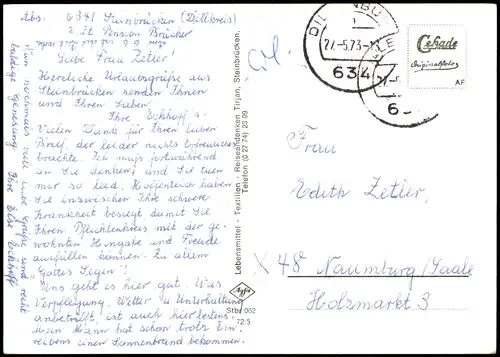 Abs. 6341 Steinbrücken (Dillkreis)
z. Zt Pension Brücker
Liebe Frau Zetler!
Herzliche Urlaubsgrüße aus
Steinbrücken senden Ihnen
und Ihren Lieben
Ihre Eckhoff's
Vielen Dank für Ihren lieben
Brief, der leider nichts Erfreuliches
brachte. Ich muß fortwährend
an Sie denken, und Sie tuen
mir so leid. Hoffentlich haben
Sie inzwischen Ihre schwere
Krankheit besiegt damit Sie
Ihren Pflichtenkreis mit der ge-
wohnten Hingabe und Freude
ausfüllen können. Zu allem
Gottes Segen!
Uns geht es hier gut. Was
Verpflegung, Wetter u. Unterhaltung
anbetrifft, ist auch hier bestens.
Mein Mann hat schon trotz Ein-
reibens einen Sonnenbrand bekommen.
Nun nochmals viele liebe Grüße und recht
baldige Genesung Ihre Else Eckhoff
Lebensmittel - Textilien - Reiseandenken Tirjan, Steinbrücken,
Telefon (0 27 74) 23 09
Agfa
Stbr 062
72/5
DILLENBU
27.-5.73-1
634
27.-5
6
Cekade
Originalfoto
AF
Frau
Edith Zetler,
X 48 Naumburg/Saale
Holzmarkt 3